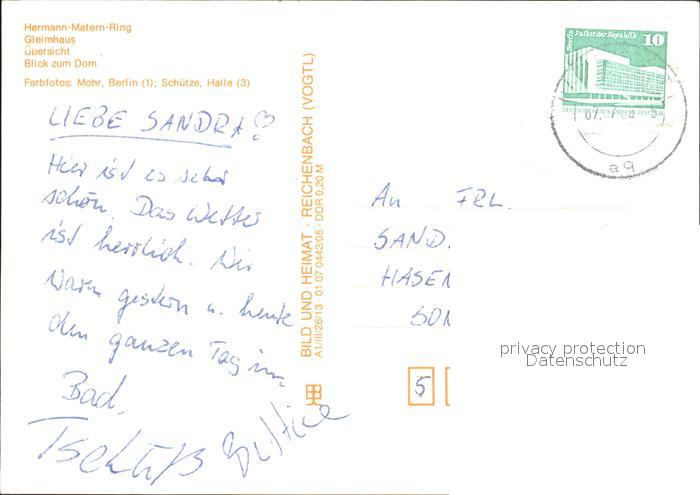 Hermann-Matern-Ring
Gleimhaus
Übersicht
Blick zum Dom
Farbfotos: Mohr, Berlin (1); Schütze, Halle (3)
LIEBE SANDRA!
Hier ist es sehr
schön. Das Wetter
ist herrlich. Wir
waren gestern u. heute
den ganzen Tag im
Bad.
Tschüß
BILD UND HEIMAT · REICHENBACH (VOGTL)
A1/III/26/13 · 01 07 0442/05 · DDR 0,20 M
Berlin Palast der Republik 10
ag
An FRL.
SAND.
HASEN
SON
5
privacy protection
Datenschutz